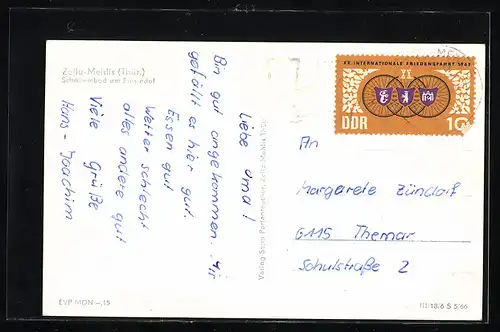 Zella-Mehlis (Thür.)
Schwimmbad am Einsiedel
Liebe Oma!
Bin gut angekommen. Mir
gefällt es hier gut.
Essen gut
Wetter schlecht
alles andere gut
Viele Grüße
Hans-Joachim
EVP MDN —,15
Verlag Zella-Mehlis
XX. INTERNATIONALE FRIEDENSFAHRT 1967
XX
DDR
10
An
Margarete Zündorf
6115 Themar
Schulstraße 2
III/18/6 S 5/66